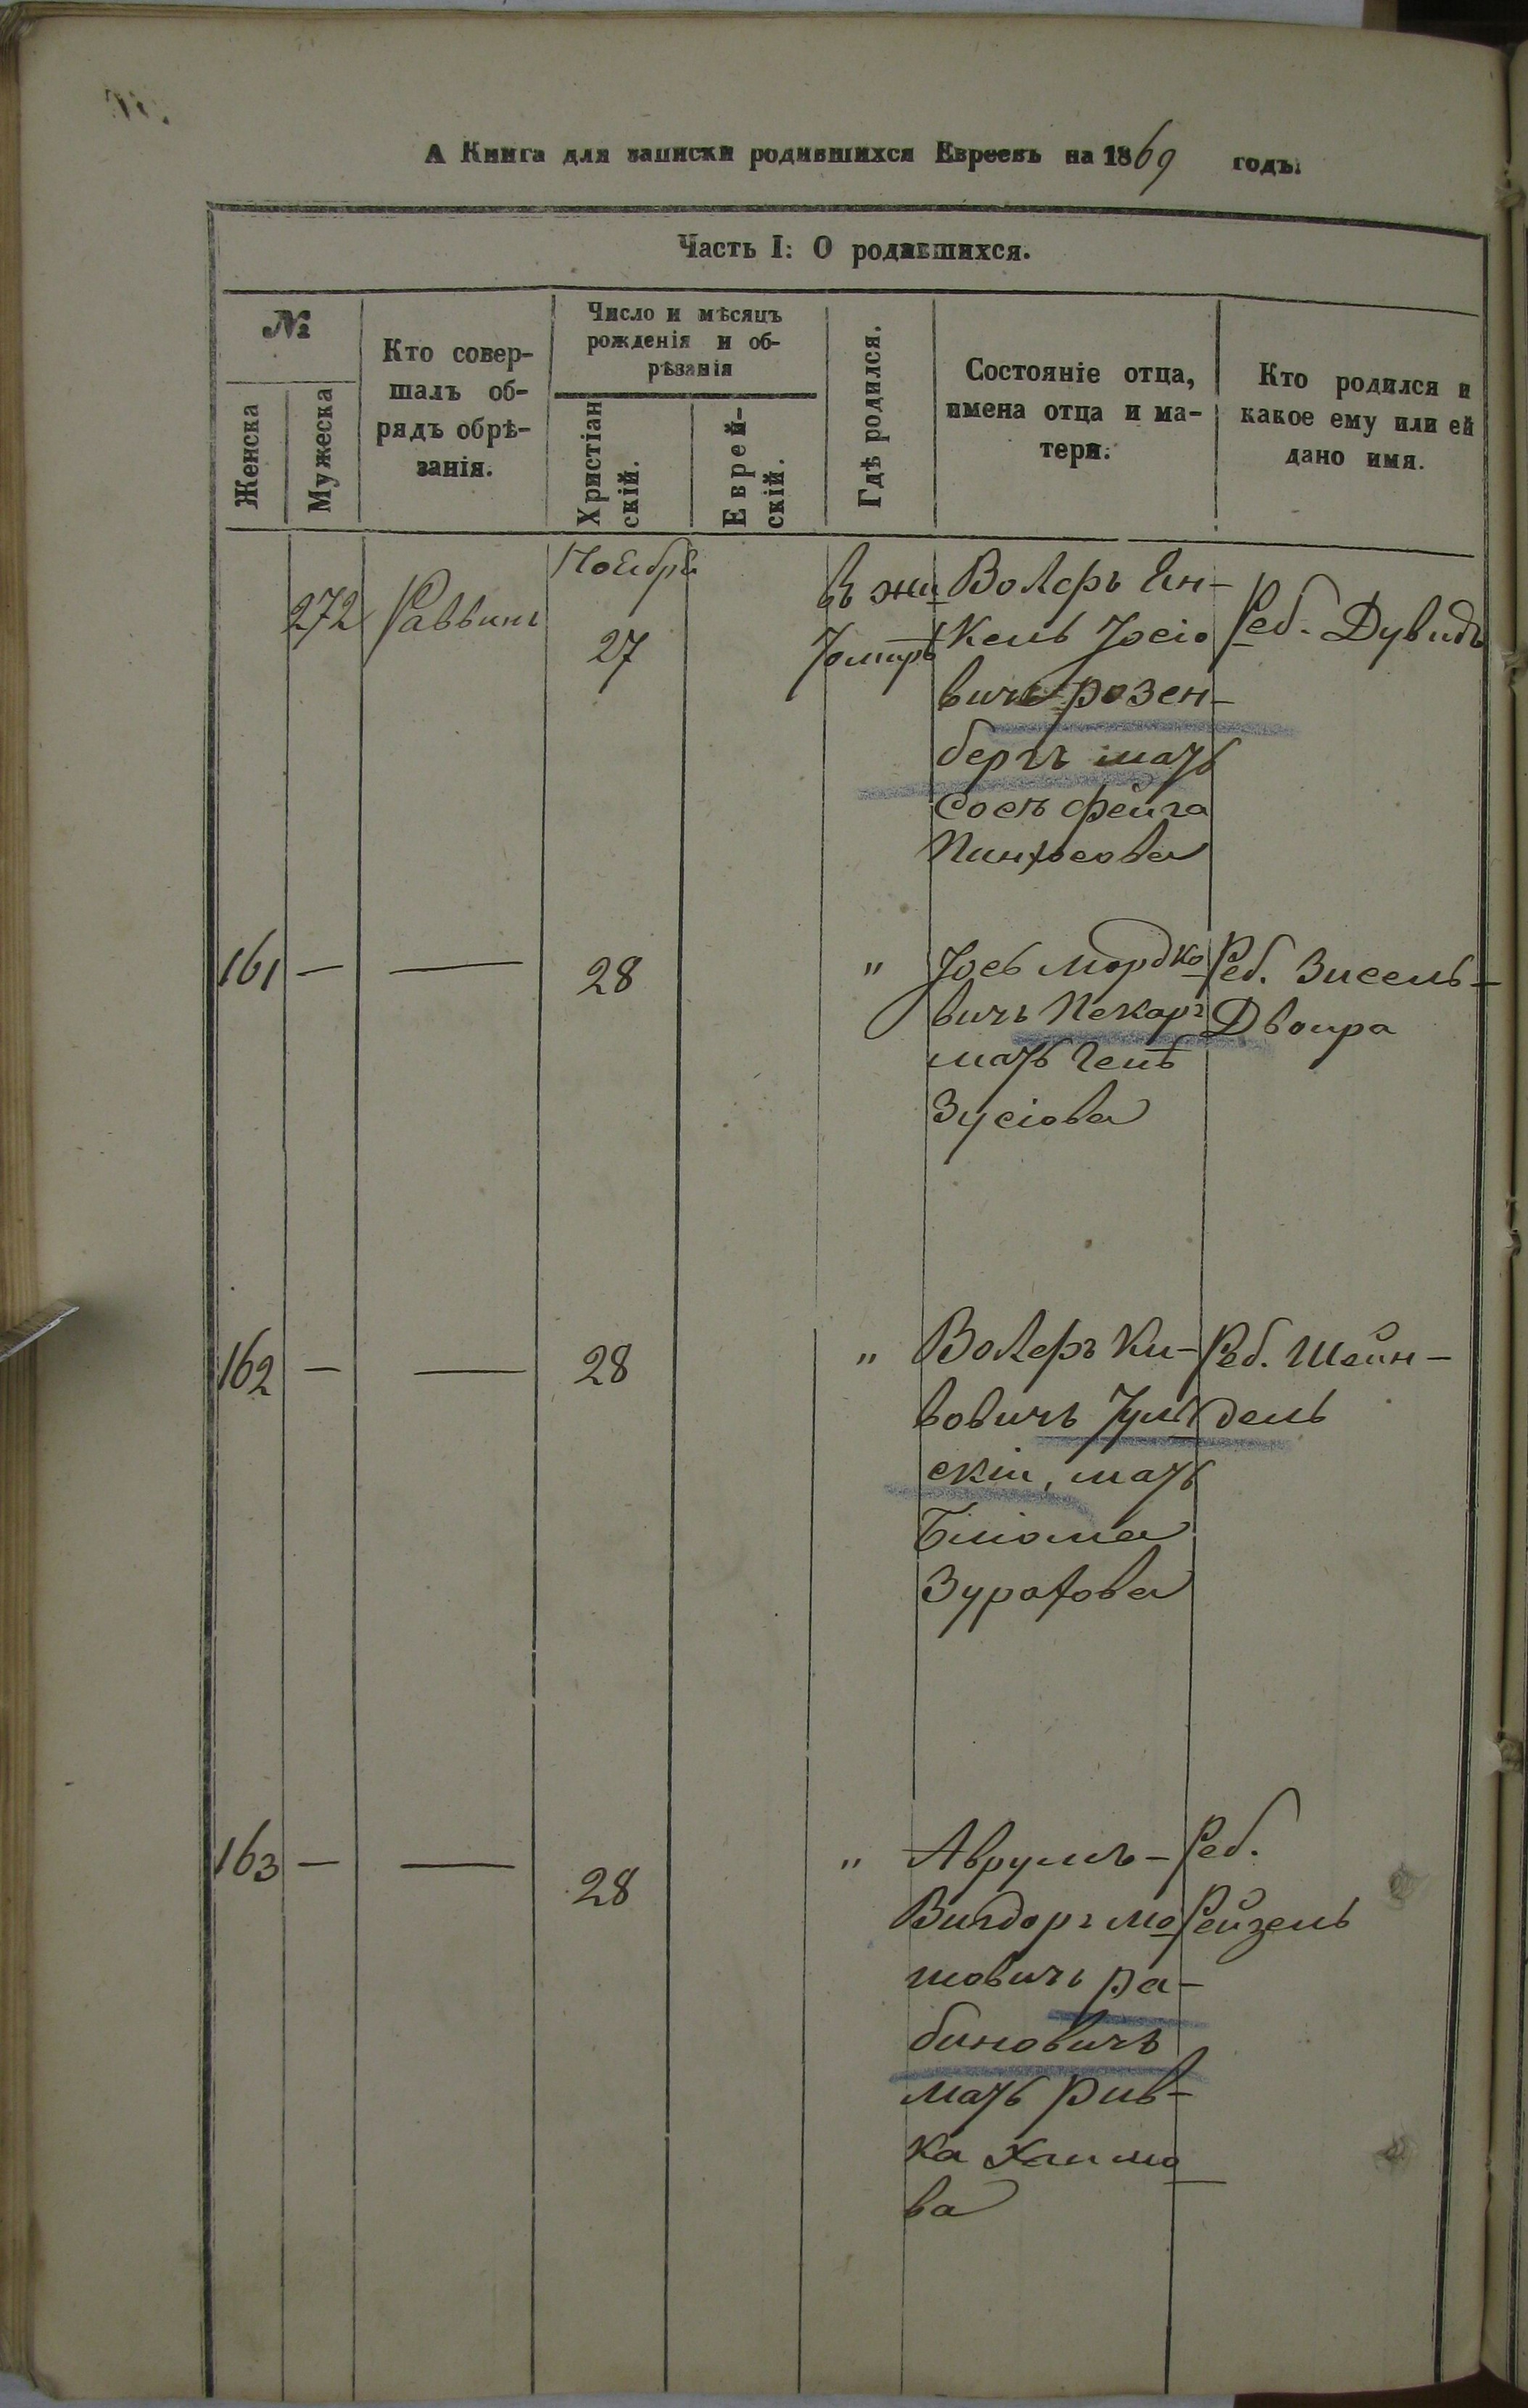 А Книга для записки родившихся Евреевъ на 1869 годъ.
Часть I: О родившихся.
№
Женска
Мужеска
Кто совер-
шалъ об-
рядъ обрѣ-
занія.
Число и мѣсяцъ
рожденія и об-
рѣзанія
Христіан
скій.
Еврей-
скій.
Гдѣ родился.
Состояніе отца,
имена отца и ма-
тери.
Кто родился и
какое ему или ей
дано имя.
272
Раввинъ
Ноября
27
въ жи
томирѣ
Волфъ Ян-
кель Іосіо
вичъ Розен-
бергъ мать
Фейга
Пинхосова
Реб. Дувидъ
161 — —
28
"
Іось Мордко
вичъ Пекарь
мать
Зусіова
Реб. Зисель-
Двойра
162 — —
28
"
Волфъ Ки-
вовичъ
скій, мать
Блюма
Реб. Шейн-
дель
163 — —
28
"
Аврумъ-
Вигдоръ Мо
шовичъ Ра-
биновичъ
мать Рив-
ка Хаимо
ва
Реб.
Рейзель